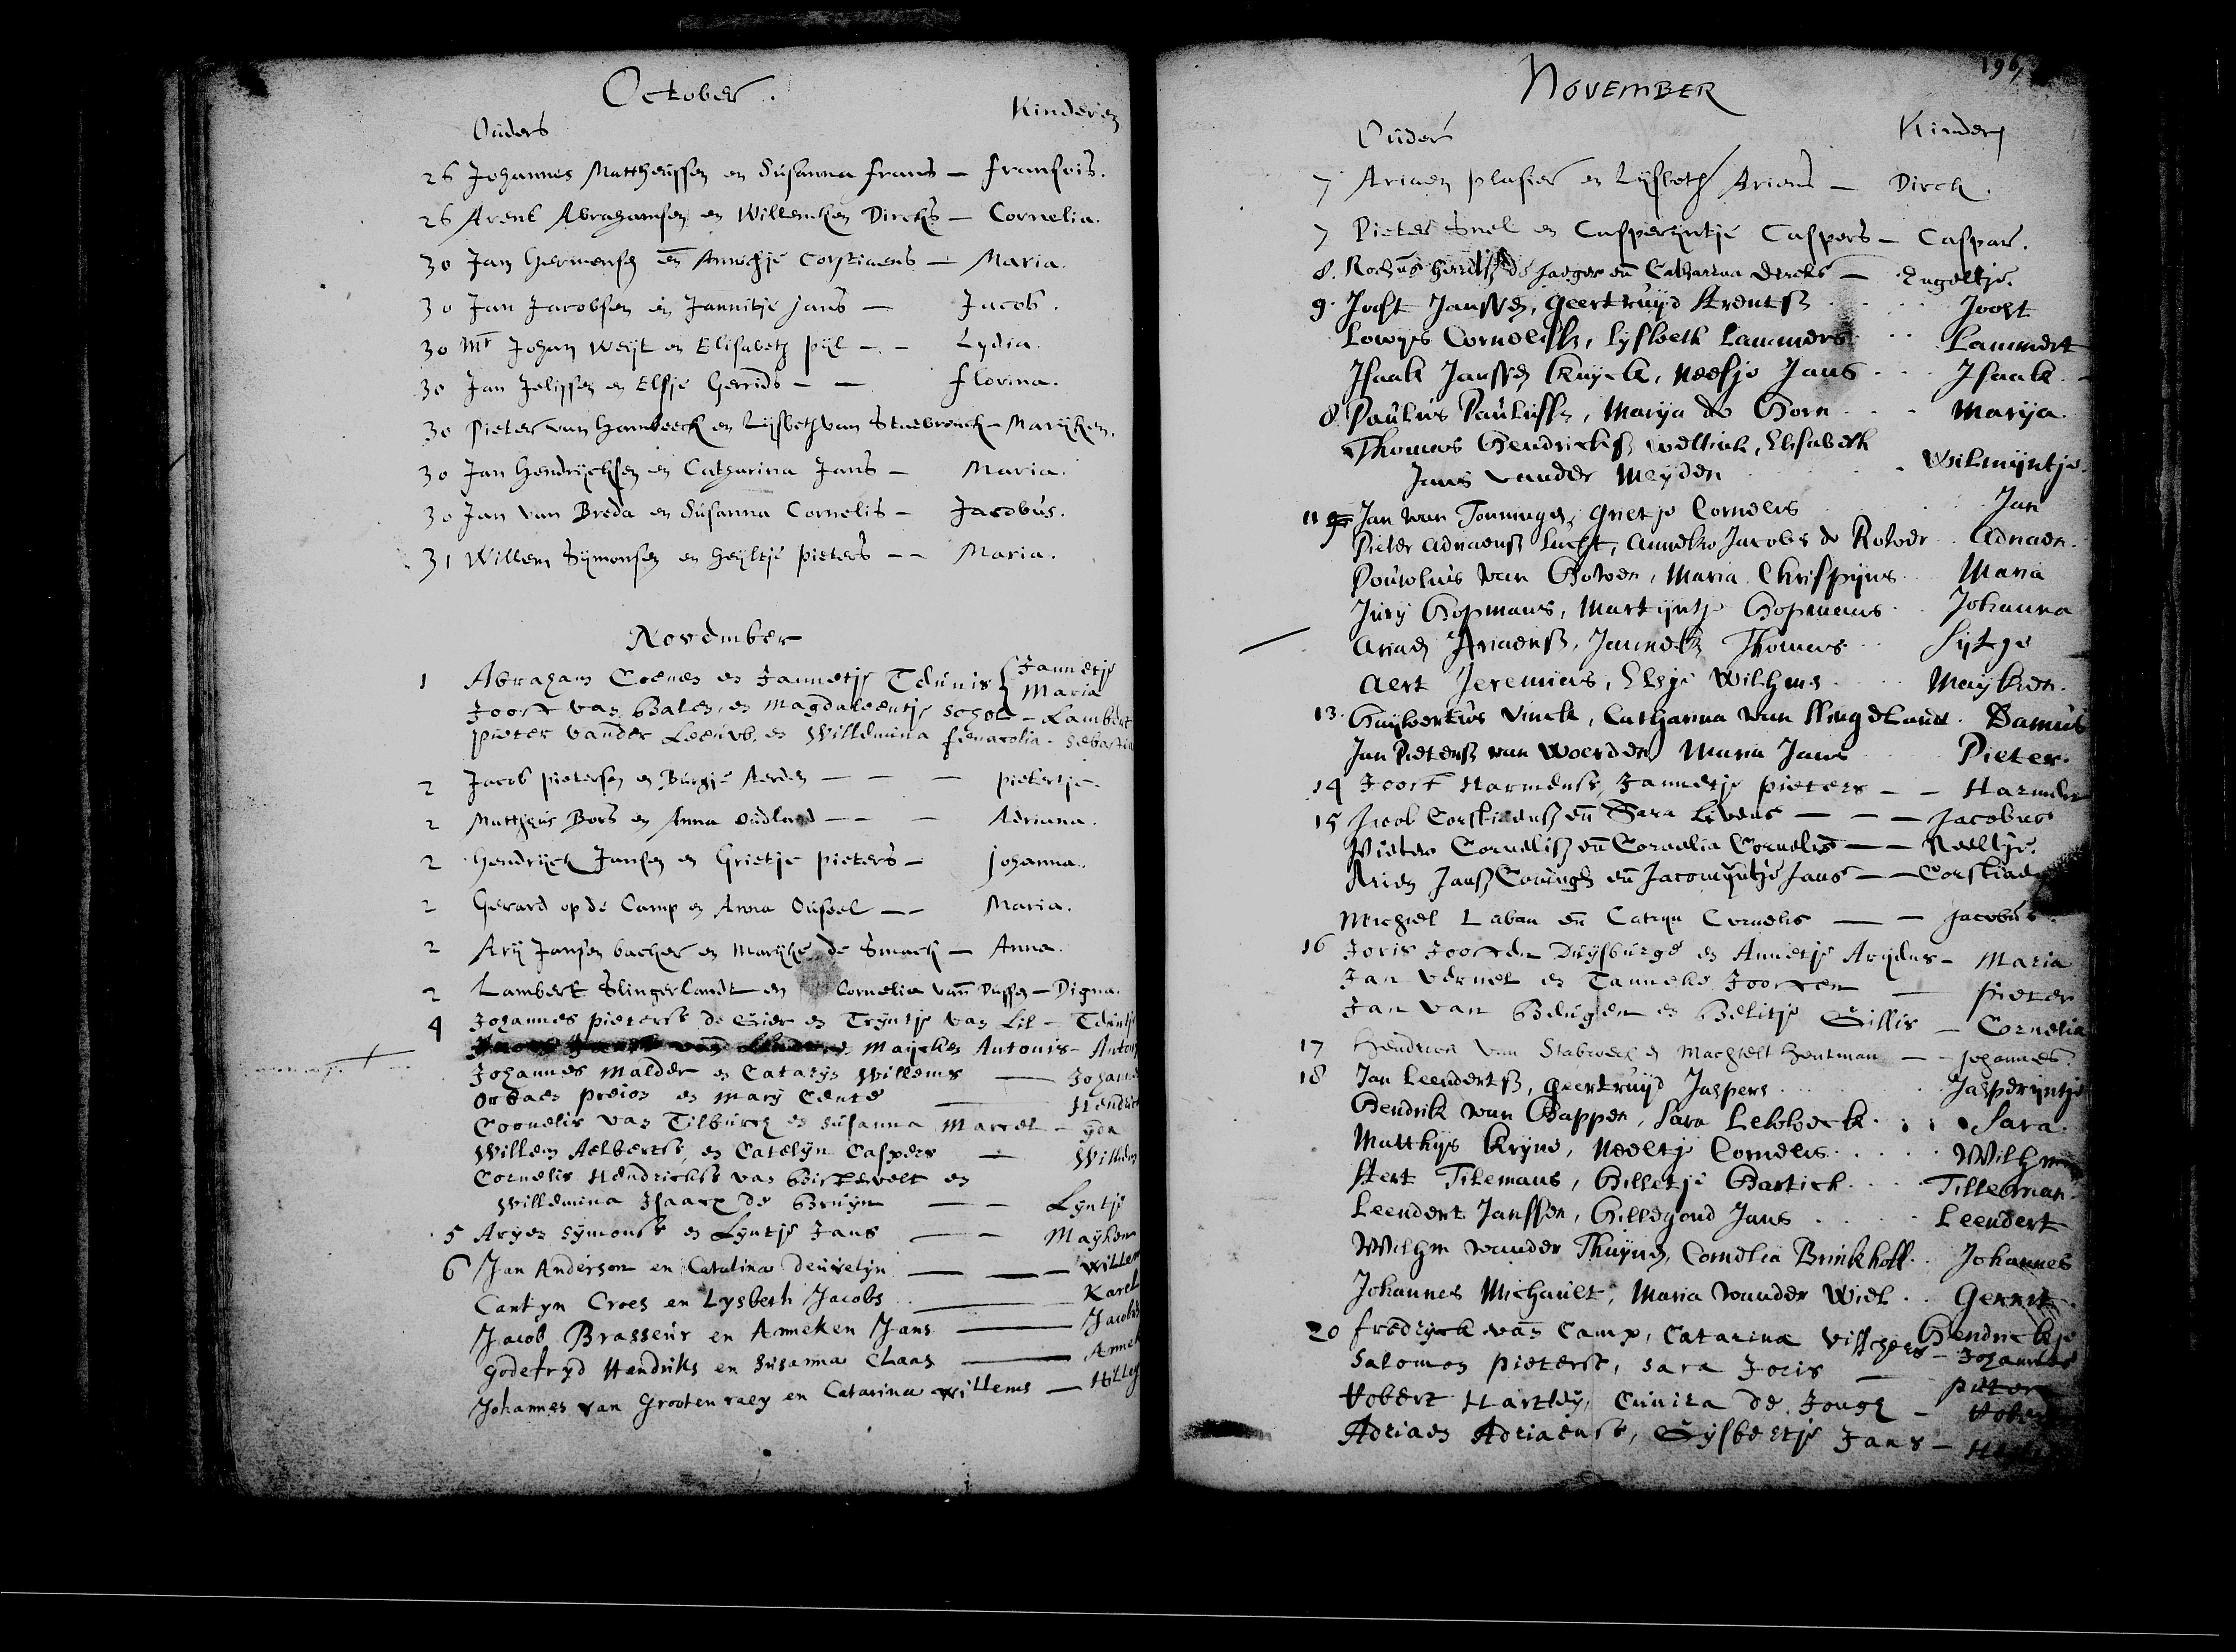 October.
Ouders Kinderen
26 Johannes Mattheussen en Susanna frans — fransois.
26 Arent Abrahamsen en Willemken Dircks — Cornelia.
30 Jan Hermensen en Annichje Corstiaens — Maria.
30 Jan Jacobsen en Jannitje Jans — Jacob.
30 Mr Johan Weijt en Elisabeth pijl — Lydia.
30 Jan Jelissen en Elsje Gerrids — — florina.
30 Pieter van Hambeeck en Lijsbeth van — Marijken.
30 Jan Hendrijcksen en Catharina Jans — Maria.
30 Jan van Breda en Susanna Cornelis — Jacobus.
31 Willem Sijmonsen en Heijltje pieters — — Maria.
November
1 Abraham Coenen en Jannetje Teunis { Jannetje
Maria
Joost van Balen, en Magdaleentje Schol — Lambert
pieter vander Leeuw, en Willemina
2 Jacob pietersen en Burgje Aerden — — — pietertje.
2 Mattheus Bors en Anna Oudland — — — Adriana.
2 Hendrijck Jansen en Grietje pieters — Johanna.
2 Gerard op de Camp en Anna Ouseel — — Maria.
2 Arij Jansen backer en Marijke de Smach — Anna.
2 Lambert Slingerlandt en Cornelia van Dussen — Digna.
4 Johannes pieterse de Gier en Trijntje van Lil —
en Maijcken Antonis —
Johannes Malder en Catarijn Willems —
en Marij —
Cornelis van Tilburch en Susanna Marcel — yda
Willem Aelbertse, en Catelijn Caspers — Willem
Cornelis Hendrickse van en
Willemina Isaacx de Bruijn — — Lijntje
5 Aryen Symonse en Lyntje Jans — — Mayken
6 Jan Anderson en Catalina — — — Willem
Cantyn Croes en Lysbeth Jacobs — Karel
Jacob Brasseur en Anneken Jans — Jacobus
Godefryd Hendriks en Susanna Claas —
Johannes van Grootenraey en Catarina Willems —
196
NOVEMBER
Ouders Kinder
7 Ariaen plasier en Lijsbeth Ariens — Dirck.
7 Pieter Snel en Casperijntje Caspers — Caspar.
8. Rochus de Jaeger en Catharina Dircks — Engeltje.
9. Joost Janssen, Geertruijd Arentss . . . Joost
Lowijs Cornelissn, Lijsbeth Lammers . . Lammert
Isaak Janssen Kuijck, Neesje Jans . . . Isaak.
8 Paulus Paulussn, Marija de Horn . . . Marija.
Thomas Hendrickss Weltink, Elisabeth
Jans vander Meijden . Wilmijntje.
11 Jan van Tonningen, Grietje Cornelis . . Jan
Pieter Adriaenss, Anneke Jacobs de Rover . . Adriaen.
van Hoven, Maria Chrispijns . . Maria
Jurij Hopmans, Martijntje Hopmans . . Johanna
Ariaen Ariaenss, Janneke Thomas . .
Aert Jeremias, Elsje Wilhms . . . Maijken.
13. Huijbertus Vinck, Catharina van Slingelandt .
Jan Pieterss van Woerden, Maria Jans Pieter.
14 Joost Harmense, Jannetje pieters — — Harmen
15 Jacob Corstiaenss en Sara Lievens — — — Jacobus
Pieter Corneliss en Cornelia Cornelis — — Neeltje.
Arien Janss Coningh en Jacomijntje Jans — — Corstiaen
Michiel Laban en Catrijn Cornelis — — Jacobus.
16 Joris Joosten Duijsburgh en Annetje Arijens — Maria
Jan Vernel en Tanneke Joosten — pieter
Jan van Beugen en Belitje Gillis — Cornelia
17 Hendrick van en Machtelt Hentman — — Johannes
18 Jan Leendertss, Geertruijd Jaspers . . . Jasperijntje
Hendrik van Happen, Sara . . . Sara.
Matthijs Krijns, Neeltje Cornelis . . . . Wilhm
Aert Tilemans, Hilletje Hartich . . . Tilleman.
Leendert Janssen, Hillegond Jans . . . . Leendert
Wilhm vander Thuijnen, Cornelia Brinkhoff . . Johannes
Johannes Michault, Maria vander Wiel . . Gerrit.
Hendrickje
20 fredrijck van Camp, Catarina Visschers — Johannes
Salomon pieterse, Sara Joris — pieter
Robert Hartley, Cunira de Jongh — Robert
Adriaen Adriaense, Gijsbertje Jans —